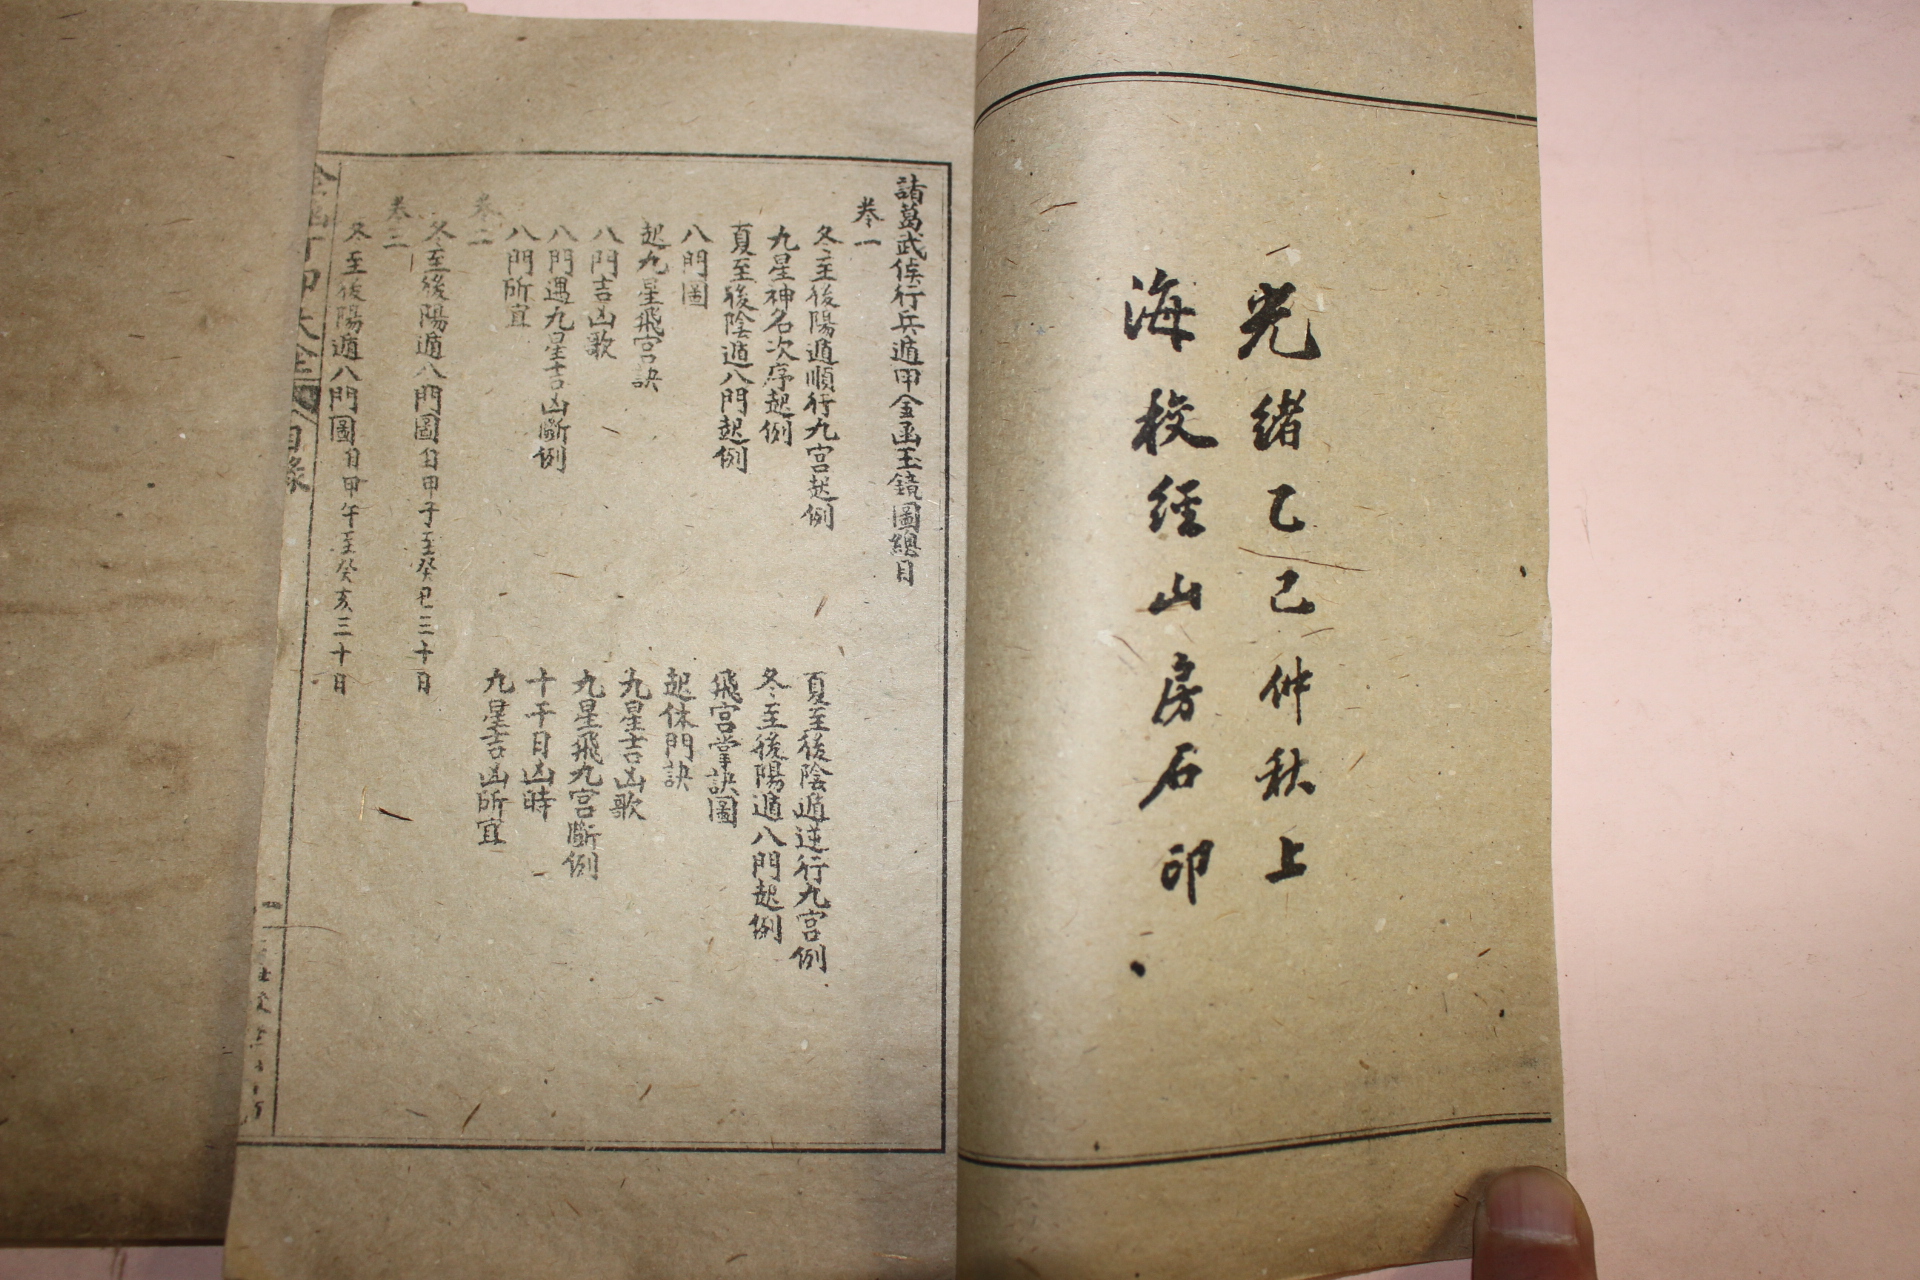 光緒乙巳仲秋上
海校經山房石印
諸葛武侯行兵遁甲金函玉鏡圖總目
卷一
冬至後陽遁順行九宮起例
夏至後陰遁逆行九宮例
九星神名次序起例
冬至後陽遁八門起例
夏至後陰遁八門起例
飛宮掌訣圖
八門圖
起休門訣
起九星飛宮訣
九星吉凶歌
八門吉凶歌
九星飛九宮斷例
八門遇九星吉凶斷例
十干日凶時
八門所宜
九星吉凶所宜
卷二
冬至後陽遁八門圖自甲子至癸巳三十日
卷三
冬至後陽遁八門圖自甲午至癸亥三十日
目錄